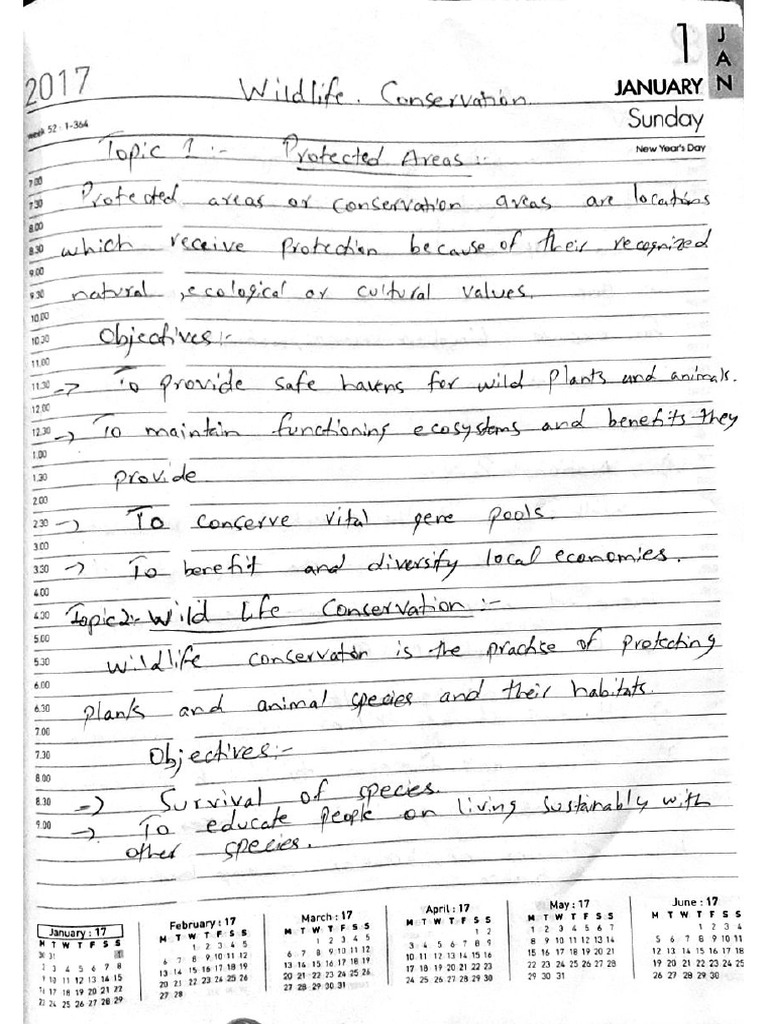 1
JAN
2017
Wildlife. Conservation.
JANUARY
Sunday
week 52 : 1-364
New Year's Day
Topic 1 :- Protected Areas :-
7.00
7.30 Protected areas or conservation areas are locations
8.00
8.30 which receive protection because of their recognized
9.00
9.30 natural, ecological or cultural values.
10.00
10.30 Objectives:-
11.00
11.30 -> To provide safe havens for wild plants and animals.
12.00
12.30 -> To maintain functioning ecosystems and benefits they
1.00
1.30 provide
2.00
2.30 -> To conserve vital gene pools.
3.00
3.30 -> To benefit and diversify local economies.
4.00
4.30 Topic2:- Wild Life Conservation :-
5.00
5.30 Wildlife conservation is the practise of protecting
6.00
6.30 plants and animal species and their habitats.
7.00
7.30 Objectives:-
8.00
8.30 -> Survival of species.
9.00 -> To educate people on living sustainably with
other species.
January : 17
M T W T F S S
30 31 1
2 3 4 5 6 7 8
9 10 11 12 13 14 15
16 17 18 19 20 21 22
23 24 25 26 27 28 29
February : 17
M T W T F S S
1 2 3 4 5
6 7 8 9 10 11 12
13 14 15 16 17 18 19
20 21 22 23 24 25 26
27 28
March : 17
M T W T F S S
1 2 3 4 5
6 7 8 9 10 11 12
13 14 15 16 17 18 19
20 21 22 23 24 25 26
27 28 29 30 31
April : 17
M T W T F S S
1 2
3 4 5 6 7 8 9
10 11 12 13 14 15 16
17 18 19 20 21 22 23
24 25 26 27 28 29 30
May : 17
M T W T F S S
1 2 3 4 5 6 7
8 9 10 11 12 13 14
15 16 17 18 19 20 21
22 23 24 25 26 27 28
29 30 31
June : 17
M T W T F S S
1 2 3 4
5 6 7 8 9 10 11
12 13 14 15 16 17 18
19 20 21 22 23 24 25
26 27 28 29 30